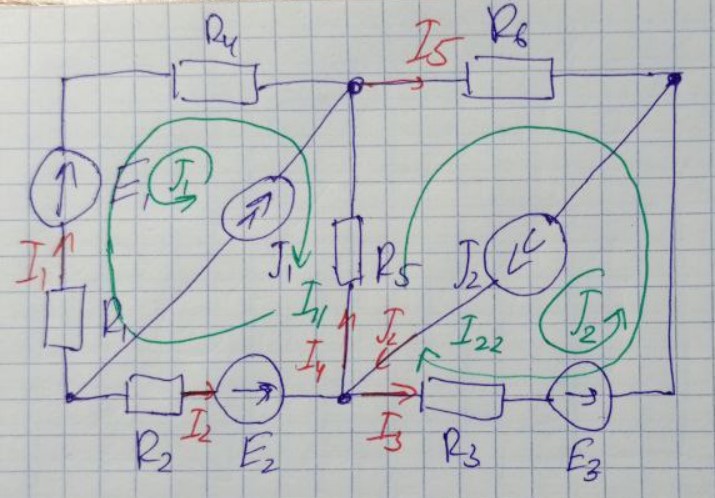 R4
I5
R6
E1
J1
I1
R1
J1
I11
R5
J2
J2
J2
I22
I4
I2
R2
E2
I3
R3
E3